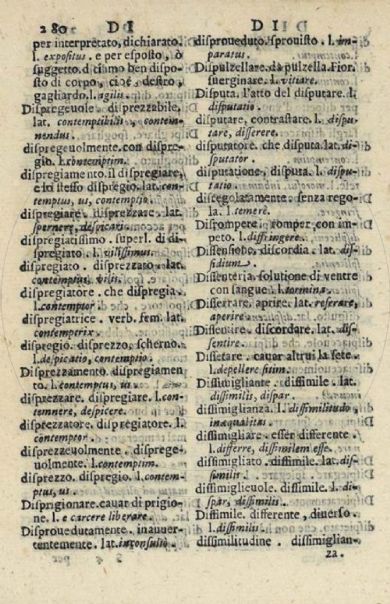 280 D I
per interpretato, dichiarato.
l. expositus. e per esposto, ò
suggetto. diciamo ben dispo-
sto di corpo, cioè destro,
gagliardo. l. agilis.
Dispregeuole. disprezzabile,
lat. contemptibilis, contem-
nendus.
dispregeuolmente. con dispre-
gio. l. contemptim.
dispregiamento. il dispregiare,
e lo stesso dispregio. lat. con-
temptus, us, contemptio.
dispregiare. disprezzare. lat.
spernere, despicari.
dispregiatissimo. superl. di di-
spregiato. l. vilissimus.
dispregiato. disprezzato. lat.
contemptus, vilis.
dispregiatore. che dispregia.
l. contemptor
dispregiatrice. verb. fem. lat.
contemptrix.
dispregio. disprezzo, scherno.
l. despicatio, contemptio.
Disprezzamento. dispregiamen
to. l. contemptus, us.
disprezzare. dispregiare. l. con-
temnere, despicere.
disprezzatore. dispregiatore. l.
contemptor.
disprezzeuolmente. disprege-
uolmente. l. contemptim.
disprezzo. dispregio. l. contem-
ptus, us.
Disprigionare. cauar di prigio-
ne. l. e carcere liberare.
Disprouedutamente. inauuer-
tentemente. lat. inconsultò.
D I
disproueduto. sprouisto. l. im-
paratus.
Dispulzellare. da pulzella. Fior.
suerginare. l. vitiare.
Disputa. l'atto del disputare. l.
disputatio.
disputare, contrastare. l. dispu-
tare, disserere.
disputatore. che disputa. lat. di-
sputator.
disputatione, disputa. l. dispu-
tatio.
disregolatamente. senza rego-
la. l. temerè.
Disrompere. romper con im-
peto. l. diffringere.
Dissensione, discordia. lat. dis-
sidium.
Dissenteria. solutione di ventre
con sangue. l. tormina.
Disserrare, aprire. lat. reserare,
aperire.
Dissentire. discordare. lat. dis-
sentire.
Dissetare. cauar altrui la sete.
l. depellere sitim.
Dissimigliante. dissimile. lat.
dissimilis, dispar.
dissimiglianza. l. dissimilitudo,
inæqualitas
dissimigliare. esser differente.
l. differre, dissimilem esse.
dissimigliato. dissimile. lat. dis-
similis
dissimiglieuole. dissimile. di-
spar, dissimilis.
Dissimile. differente, diuerso.
l. dissimilis
dissimilitudine. dissimiglian-
za.